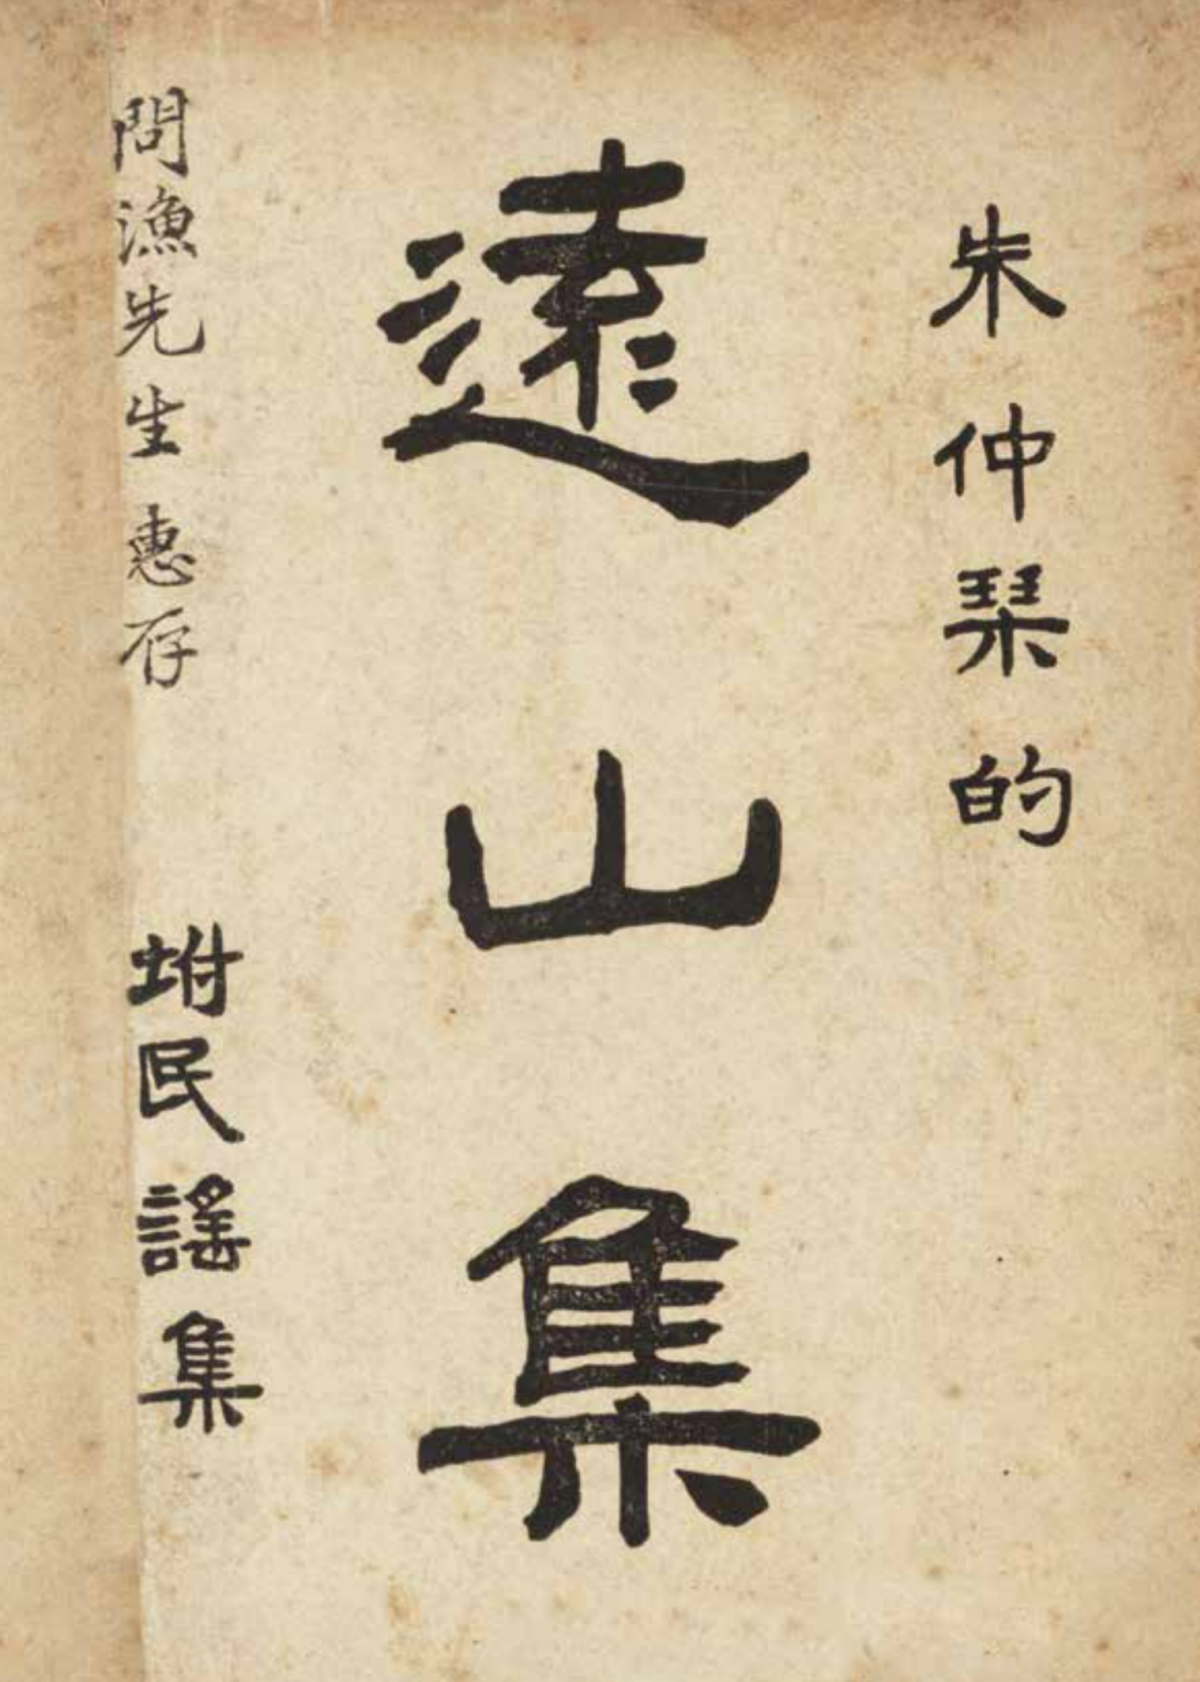 朱仲琹的
遠山集
坿民謠集
問漁先生惠存